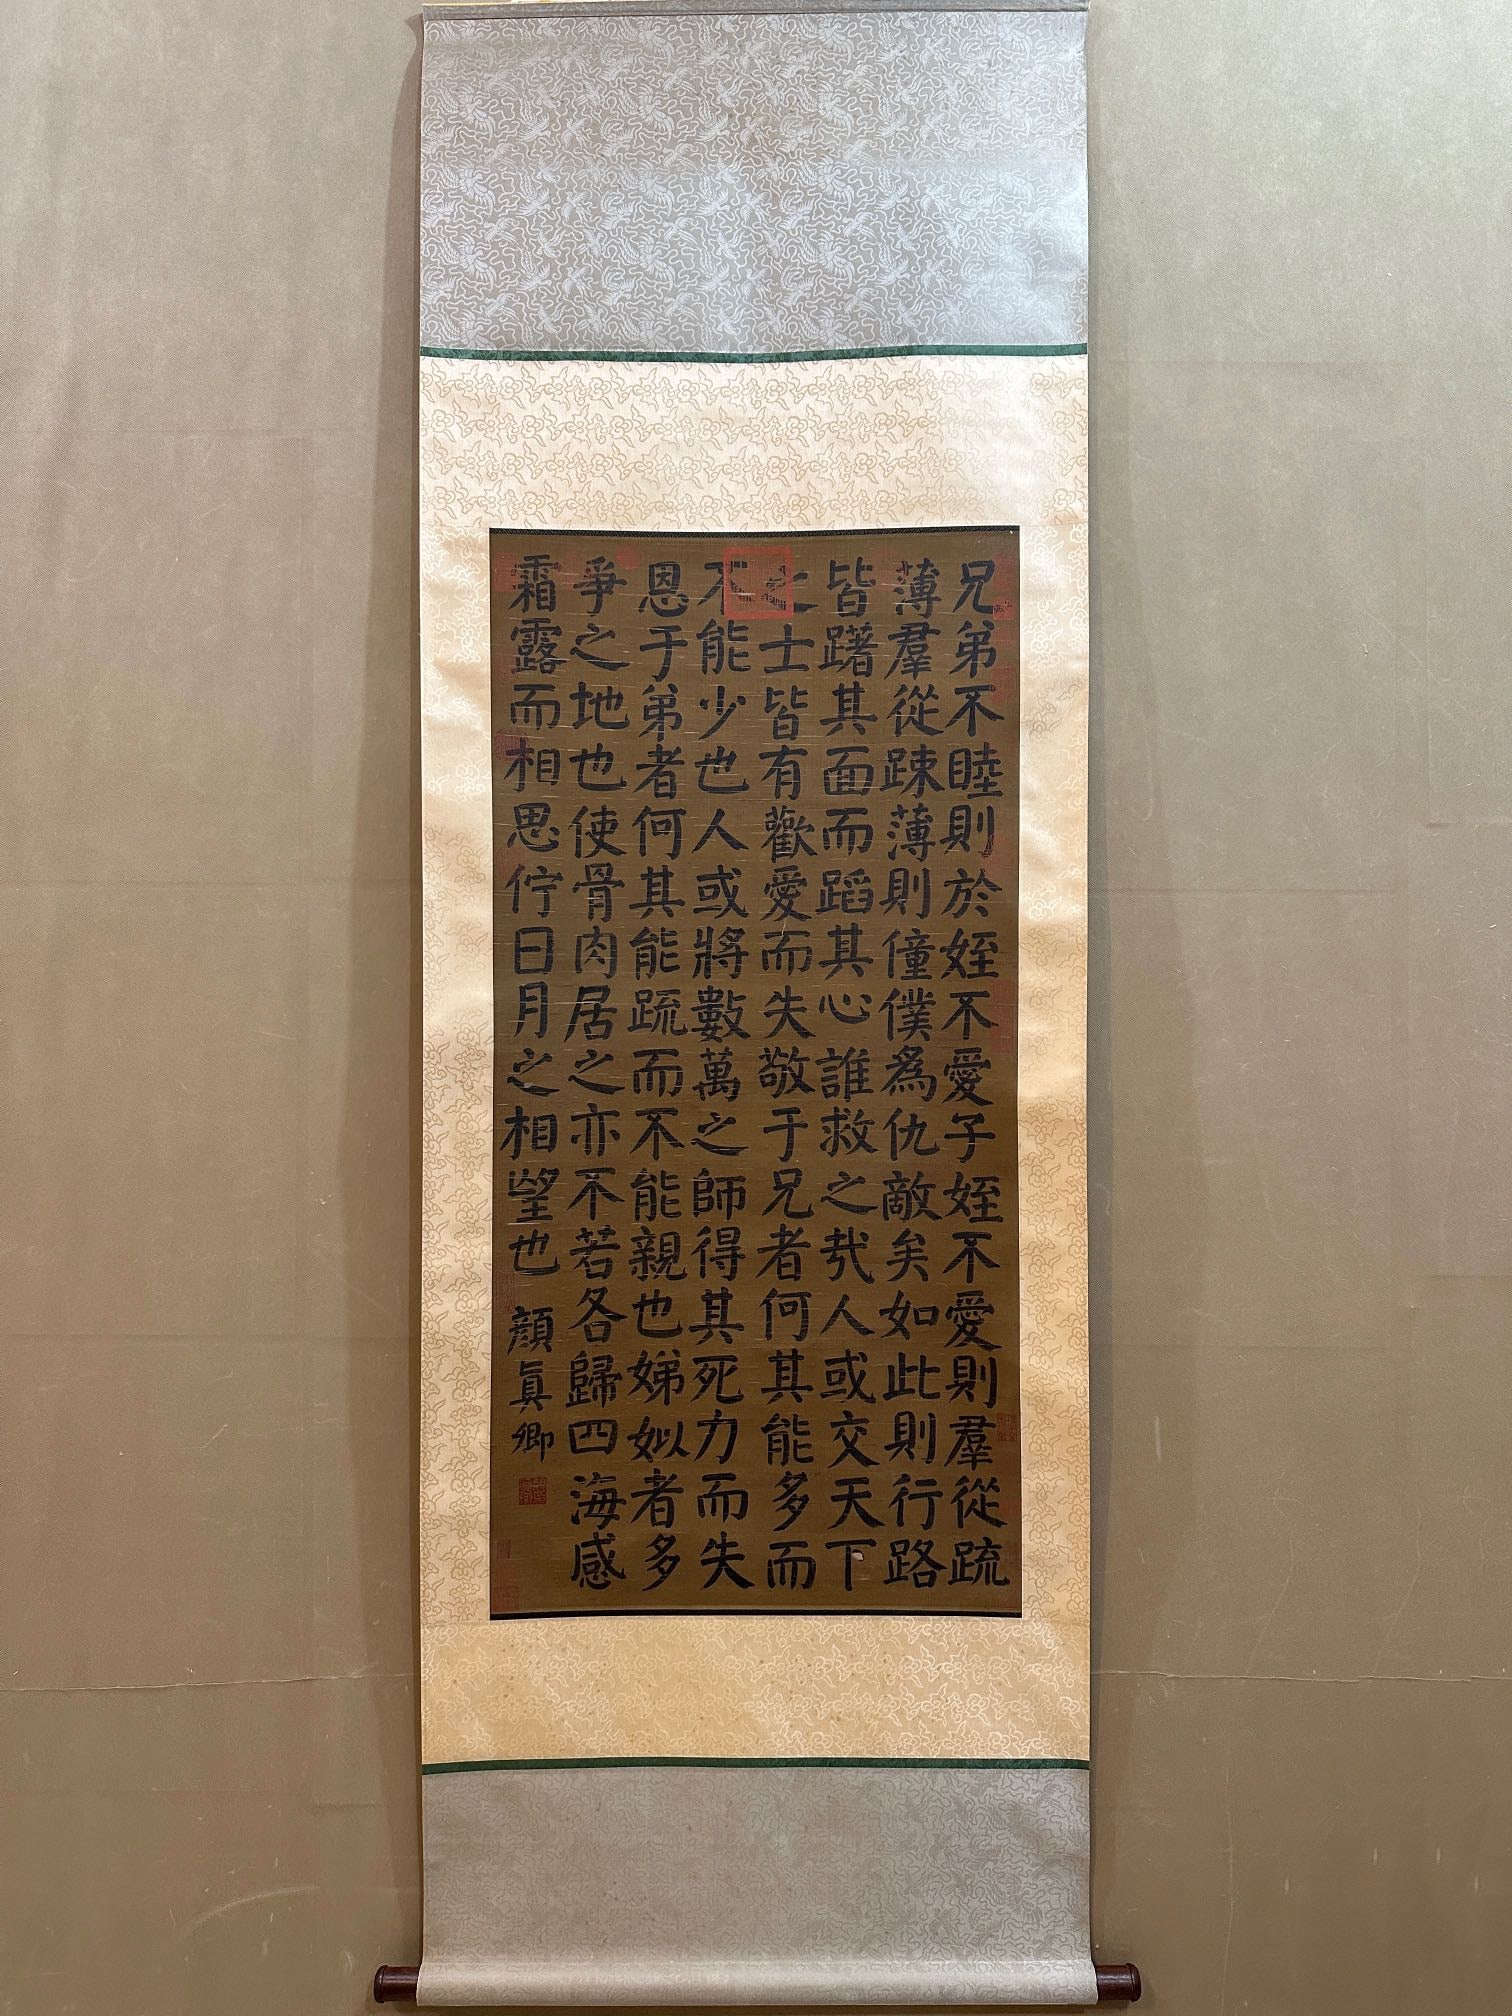 兄弟不睦則於姪不愛子姪不愛則羣從疏
薄羣從踈薄則僮僕為仇敵矣如此則行路
皆躇其面而蹈其心誰救之哉人或交天下
之士皆有歡愛而失敬于兄者何其能多而
不能少也人或將數萬之師得其死力而失
恩于弟者何其能疏而不能親也娣姒者多
爭之地也使骨肉居之亦不若各歸四海感
霜露而相思佇日月之相望也
顏真卿